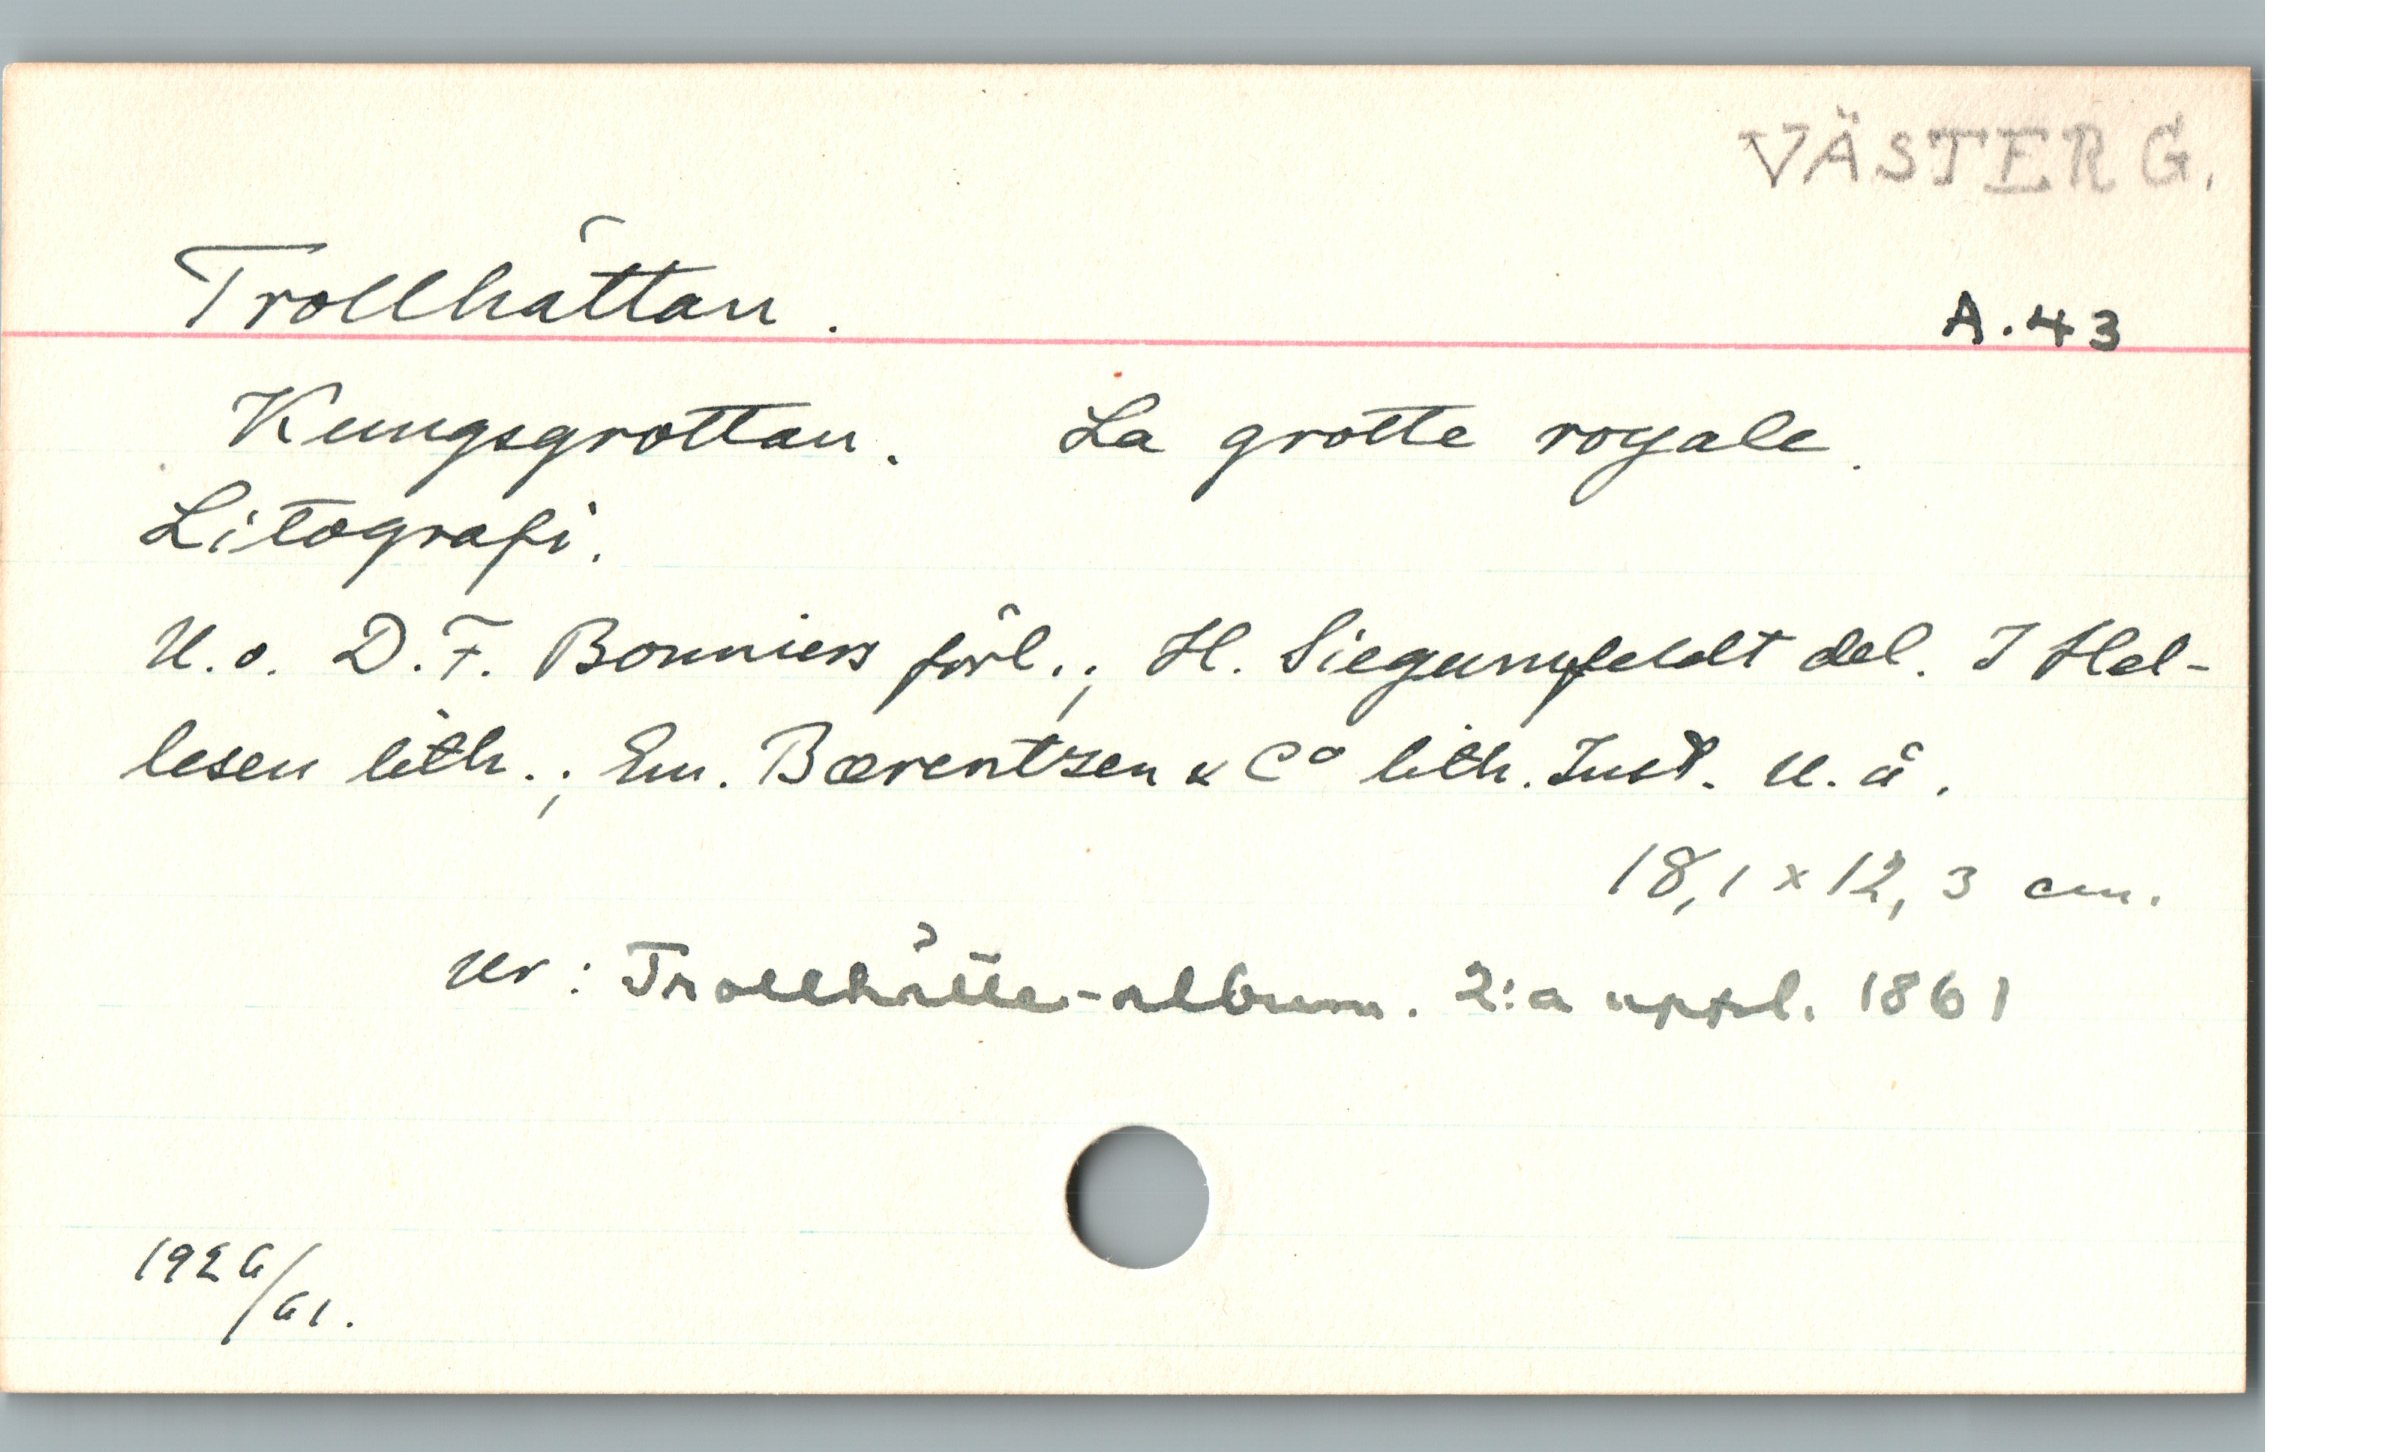 VÄSTERG.
Trollhättan.
A.43
Kungsgrottan. La grotte royale.
Litografi.
U.o. D.F. Bonniers förl.; H. Siegumfeldt del. I Hel-
lesen lith.; Em. Bærentzen & Cº lith. Inst. U.å.
18,1 x 12,3 cm.
Ur: Trollhätte-album. 2:a uppl. 1861
1926/61.